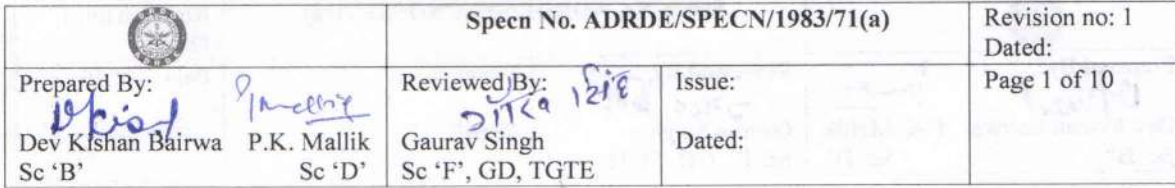 Specn No. ADRDE/SPECN/1983/71(a)
Revision no: 1
Dated:
Prepared By:
Dev Kishan Bairwa
Sc 'B'
P.K. Mallik
Sc 'D'
Reviewed By:
गौरव सिंह
Gaurav Singh
Sc 'F', GD, TGTE
Issue:
Dated:
Page 1 of 10